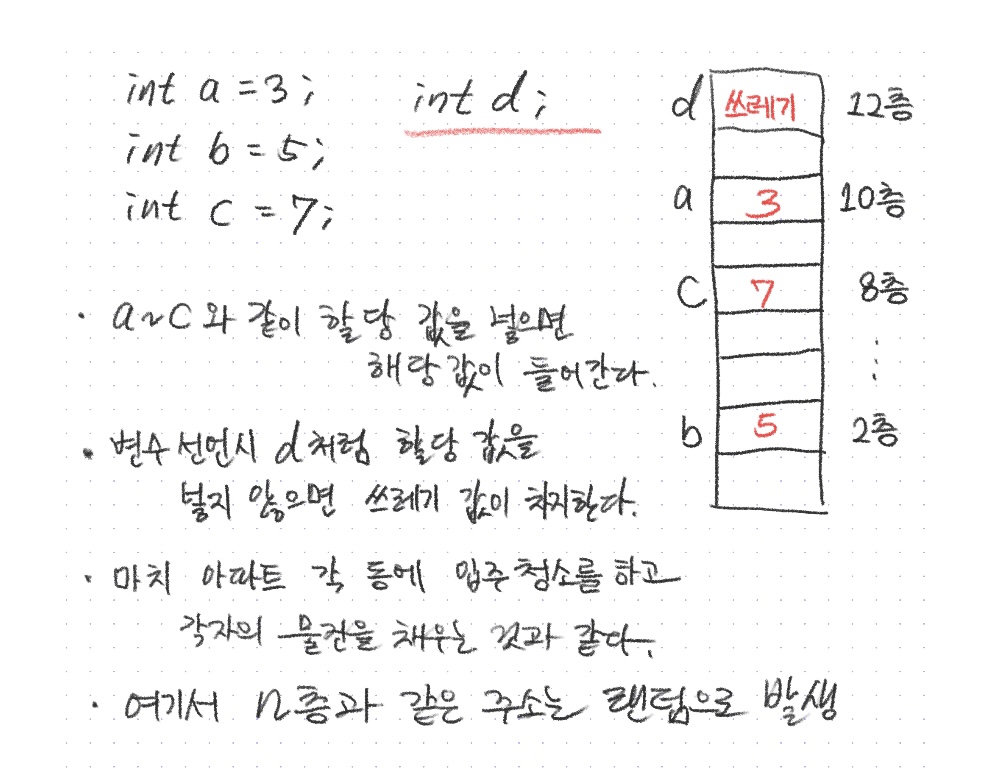 int a = 3;
int d;
int b = 5;
int c = 7;
d 쓰레기 12층
a 3 10층
c 7 8층
b 5 2층
· a~c 와 같이 할당 값을 넣으면
해당 값이 들어간다.
· 변수 선언시 d처럼 할당 값을
넣지 않으면 쓰레기 값이 차지한다.
· 마치 아파트 각 동에 입주청소를 하고
각자의 물건을 채우는 것과 같다.
· 여기서 n층과 같은 주소는 랜덤으로 발생